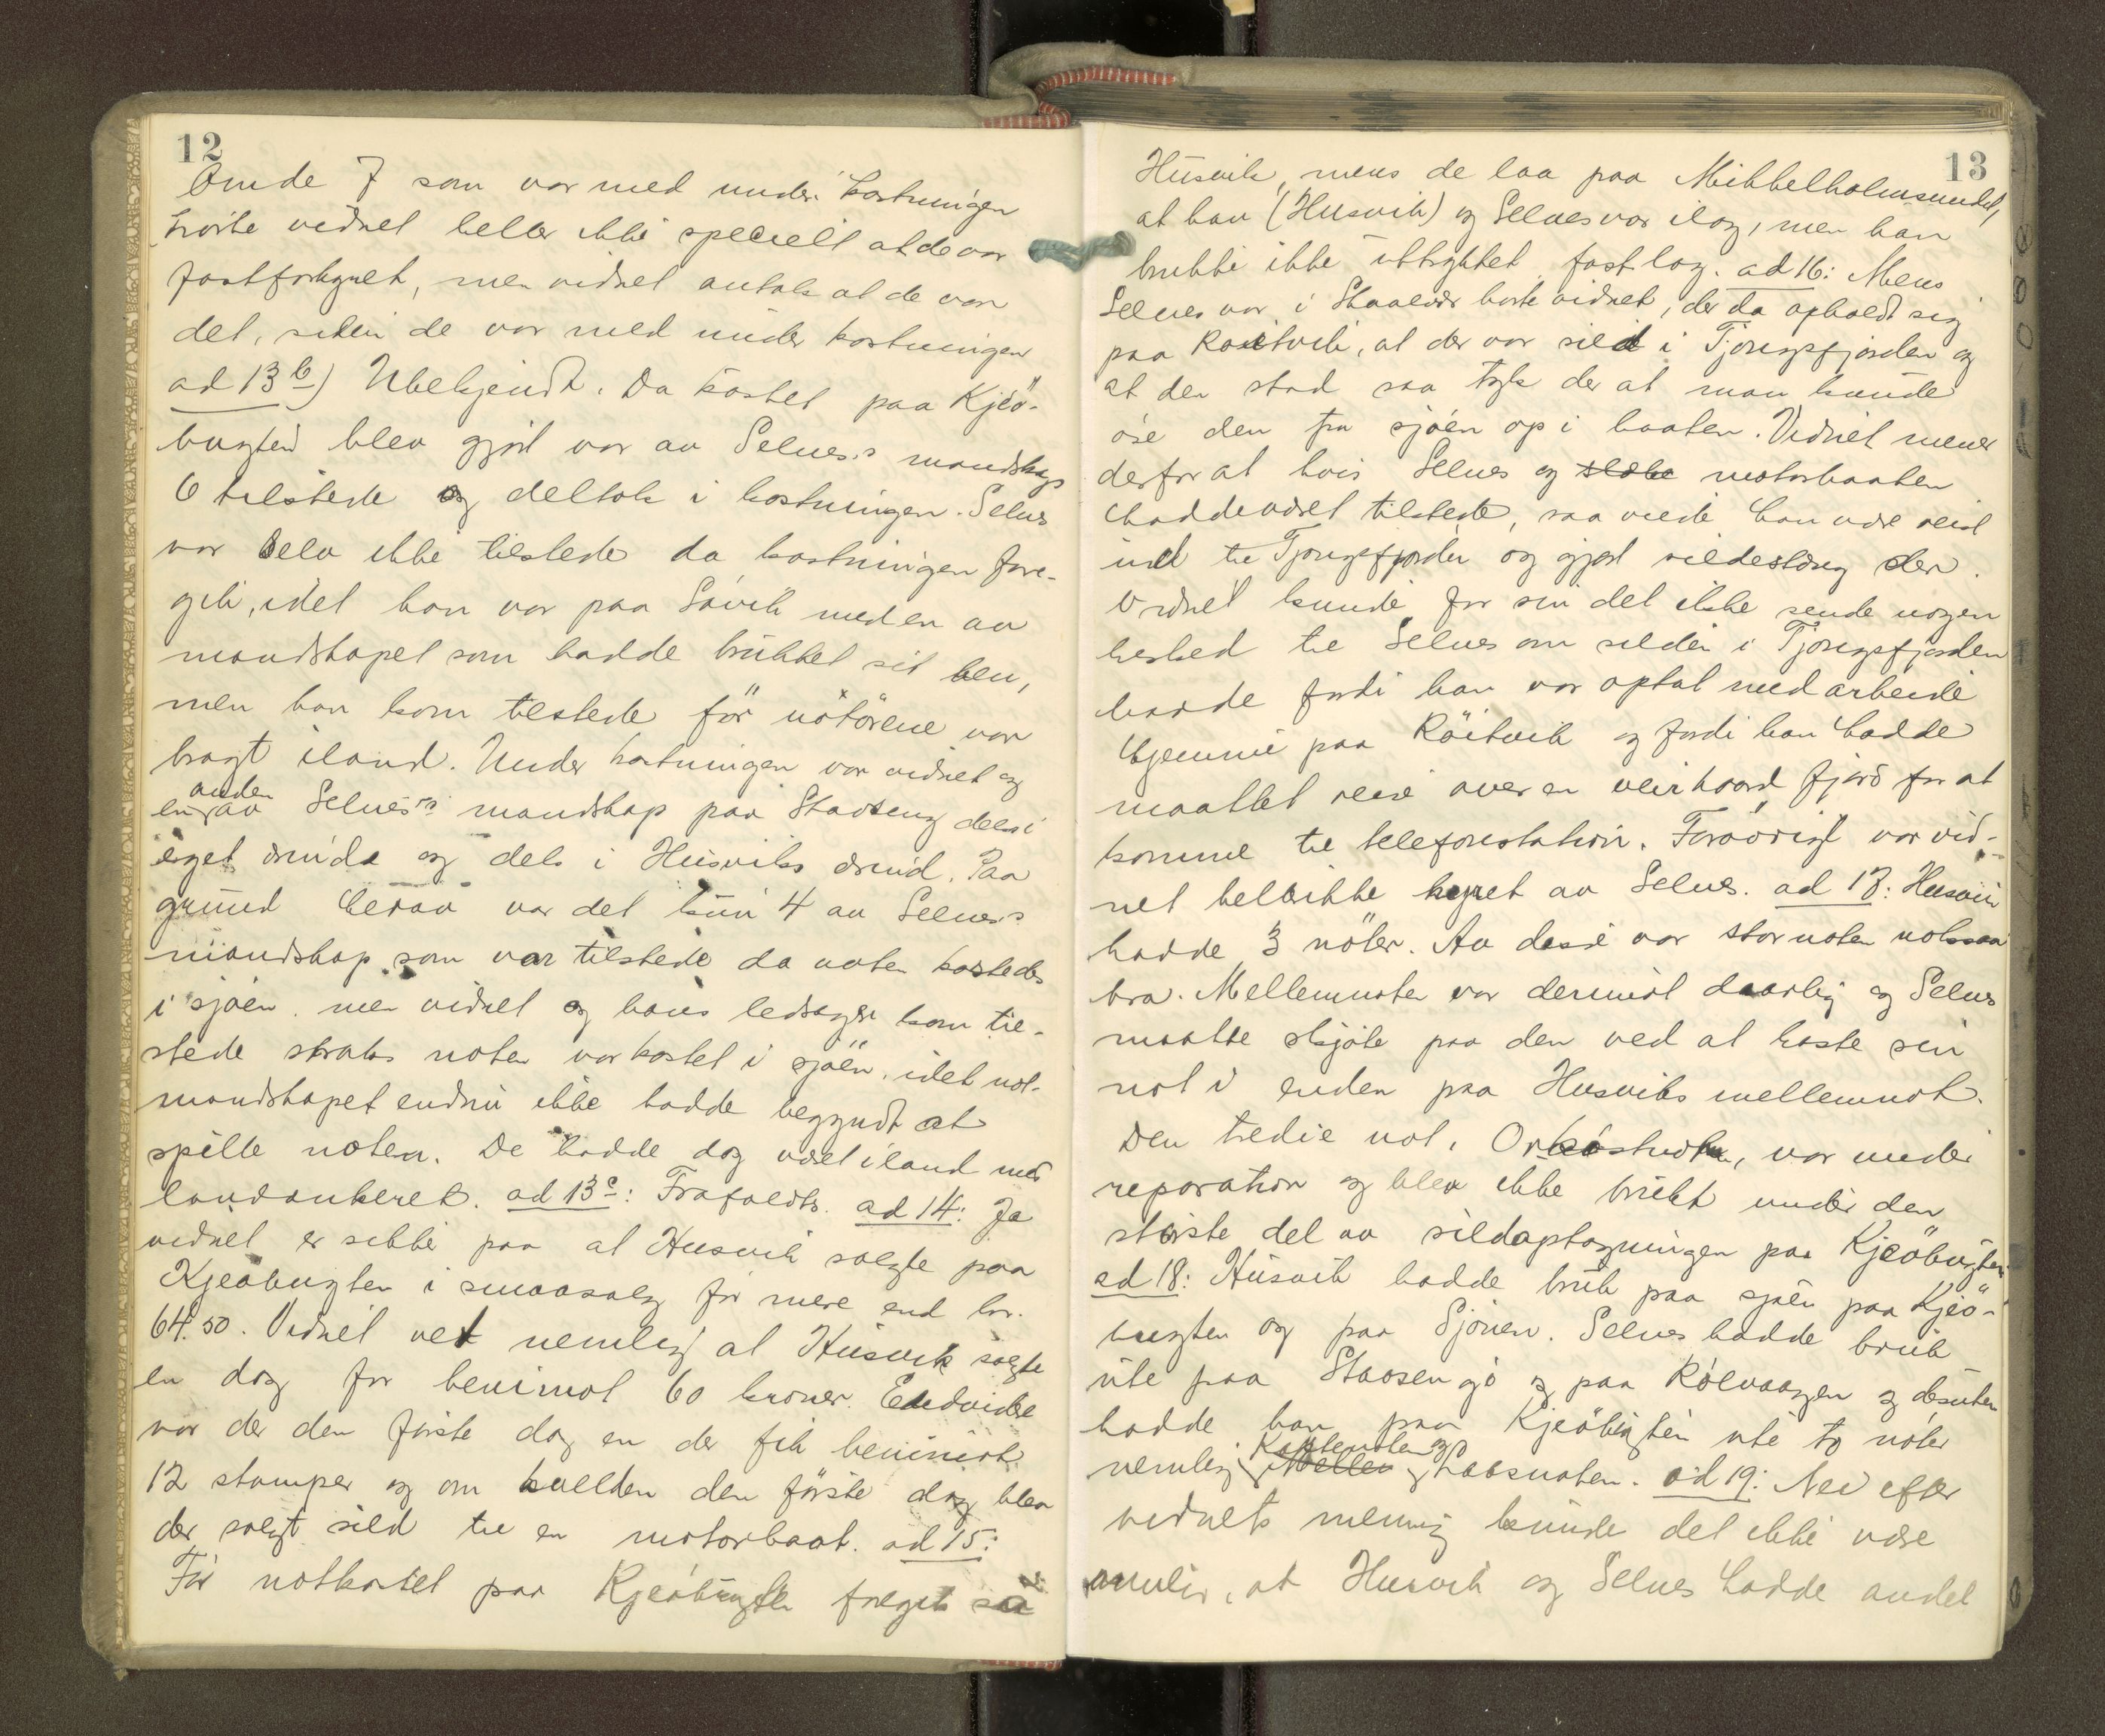 12
Om de 7 som var med under kastningen
hørte vidnet heller ikke specielt at de var
fastforhyret, men vidnet antok at de var
det, siden de var med under kastningen
ad 13 b) Ubekjendt. Da kastet paa Kjeö-
bugten blev gjort var av Selnes's mandskap
6 tilstede og deltok i kastningen. Selnes
var selv ikke tilstede da kastningen fore-
gik, idet han var paa Løvik med en av
mandskapet som hadde brukket sit ben,
men han kom tilstede før nøtørene var
bragt iland. Under kastningen var vidnet og
anden
en av Selnes's mandskap paa Stavseng dels i
eget ærinde og dels i Husviks ærind. Paa
grund herav var det kun 4 av Selnes's
mandskap som var tilstede da noten kastedes
i sjøen. men vidnet og hans ledsager kom til-
stede straks noten var kastet i sjøen, idet not-
mandskapet endnu ikke hadde begyndt at
spille noten. De hadde dog været iland med
landankeret. ad 13 c: Frafaldt. ad 14: Ja
vidnet er sikker paa at Husvik solgte paa
Kjeøbugten i smaasalg for mere end kr.
64.50. Vidnet vet nemlig at Husvik solgte
en dag for henimot 60 kroner. Endvidere
var der den første dag en der fik henimot
12 stamper og om kvelden den første dag blev
der solgt sild til en motorbaat. ad 15:
Før notkastet paa Kjeøbugten foregik sa
13
Husvik, mens de laa paa Mikkelholmsundet,
at han (Husvik) og Selnes var ilag, men han
brukte ikke uttrykket fast lag. ad 16: Mens
Selnes var i Skaalvær hørte vidnet, der da opholdt sig
paa Røitvik, at der var sild i Tjongsfjorden og
at den stod saa tyk der at man kunde
øse den fra sjøen op i baaten. Vidnet mener
derfor at hvis Selnes og motorbaaten
hadde været tilstede, saa vilde han være reist
ind til Tjongsfjorden og gjort sildestæng der.
Vidnet kunde for sin del ikke sende nogen
besked til Selnes om silden i Tjongsfjorden
baade fordi han var optat med arbeide
hjemme paa Röitvik og fordi han hadde
maattet reise over en veirhaard fjord for at
komme til telefonstation. Forøvrigt var vid-
net heller ikke hyret av Selnes. ad 17: Husvik
hadde 3 nøter. Av disse var stornoten noksaa
bra. Mellemnoten var derimot daarlig og Selnes
maatte skjøte paa den ved at kaste sin
not i enden paa Husviks mellemnot.
Den tredie not, Orkastnoten, var under
reparation og blev ikke brukt under den
største del av sildoptagningen paa Kjeöbugten.
ad 18: Husvik hadde bruk paa sjøen paa Kjeö-
bugten og paa Sjonen. Selnes hadde bruk
ute paa Stavsengø og paa Rølvaagen og desuten
hadde han paa Kjeöbugten ute to nøter
Kastenoten og
nemlig Mellem og Laasnoten. ad 19: Nei efter
vidnets mening kunde det ikke være
mulig, at Husvik og Selnes hadde andel